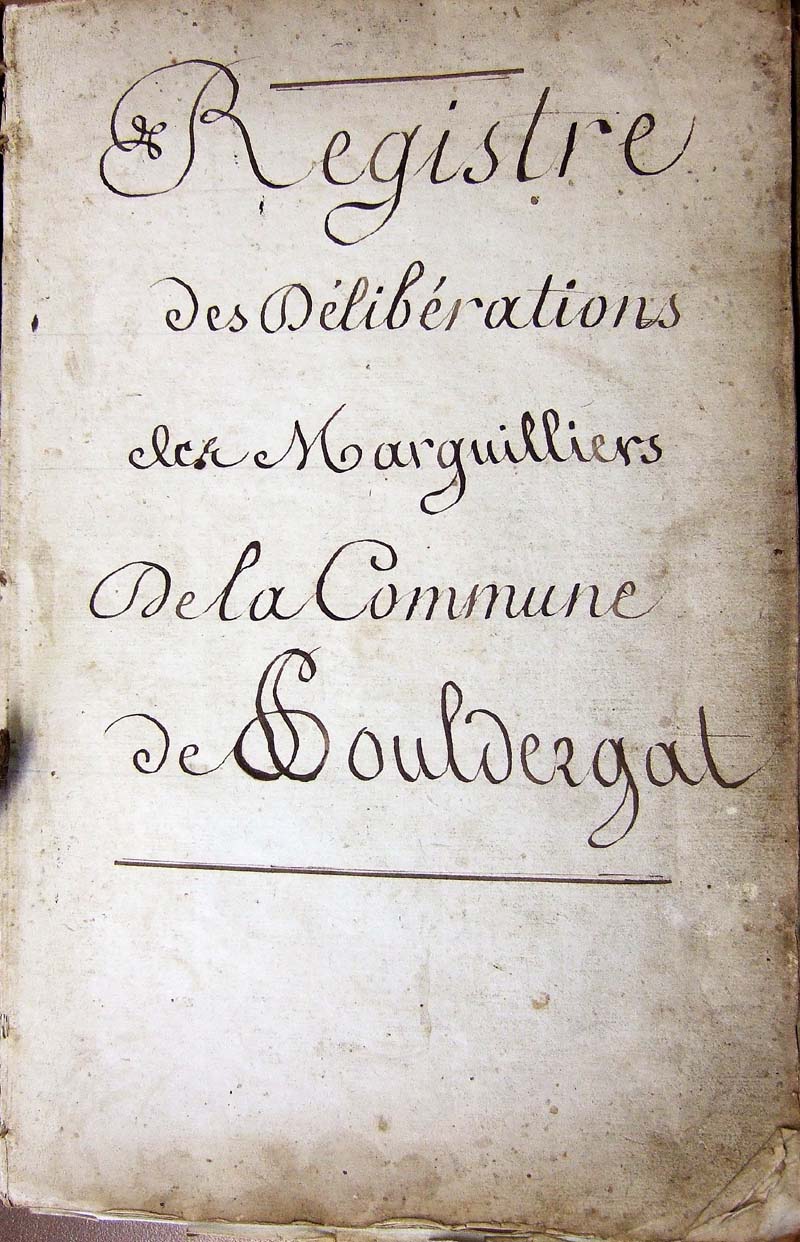 Registre
des Délibérations
des Marguilliers
De la Commune
de Gouldergat